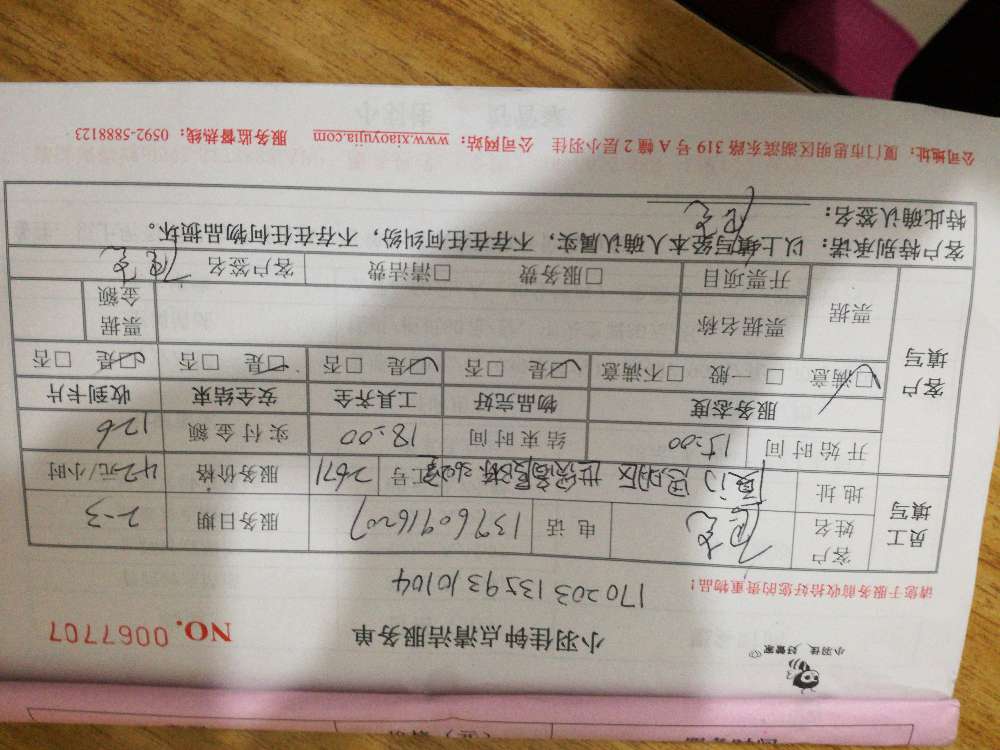 小羽佳 好管家
小羽佳钟点清洁服务单 NO. 0067707
请您于服务前收拾好您的贵重物品！
1702031359310104
员工填写
客户姓名 电话 13760941607 服务日期 2-3
地址 厦门 思明区 工号 2671 服务价格 42元/小时
开始时间 15:00 结束时间 18:00 实付金额 126
客户填写
服务态度 物品完好 工具齐全 安全结束 收到卡片
☑满意 □一般 □不满意 ☑是 □否 ☑是 □否 ☑是 □否 ☑是 □否
票据 票据名称 票据金额
开票项目 □服务费 □清洁费 客户签名
客户特别承诺：以上填写经本人确认属实，不存在任何纠纷，不存在任何物品损坏。
特此确认签名：
公司地址：厦门市思明区湖滨东路 319 号 A 幢 2 层小羽佳 公司网站：www.xiaoyujia.com 服务监督热线：0592-5888123